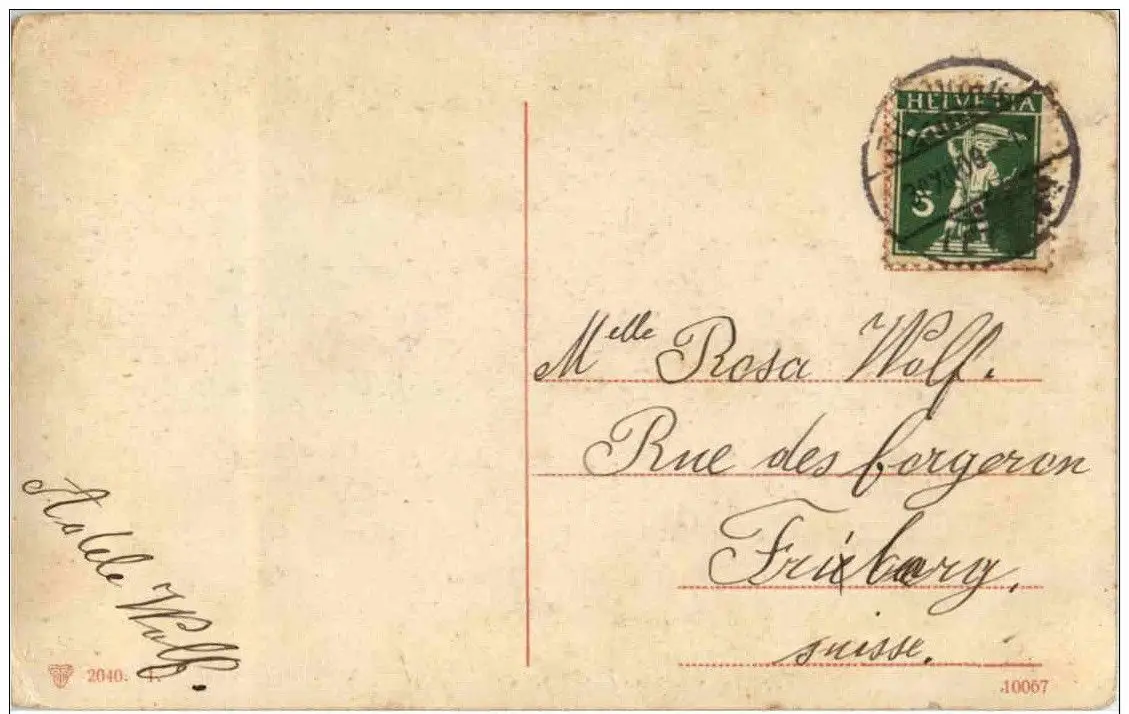 HELVETIA
5
Melle Rosa Wolf.
Rue des forgeron
Friborg.
suisse.
Adele Wolf.
2040.
10067